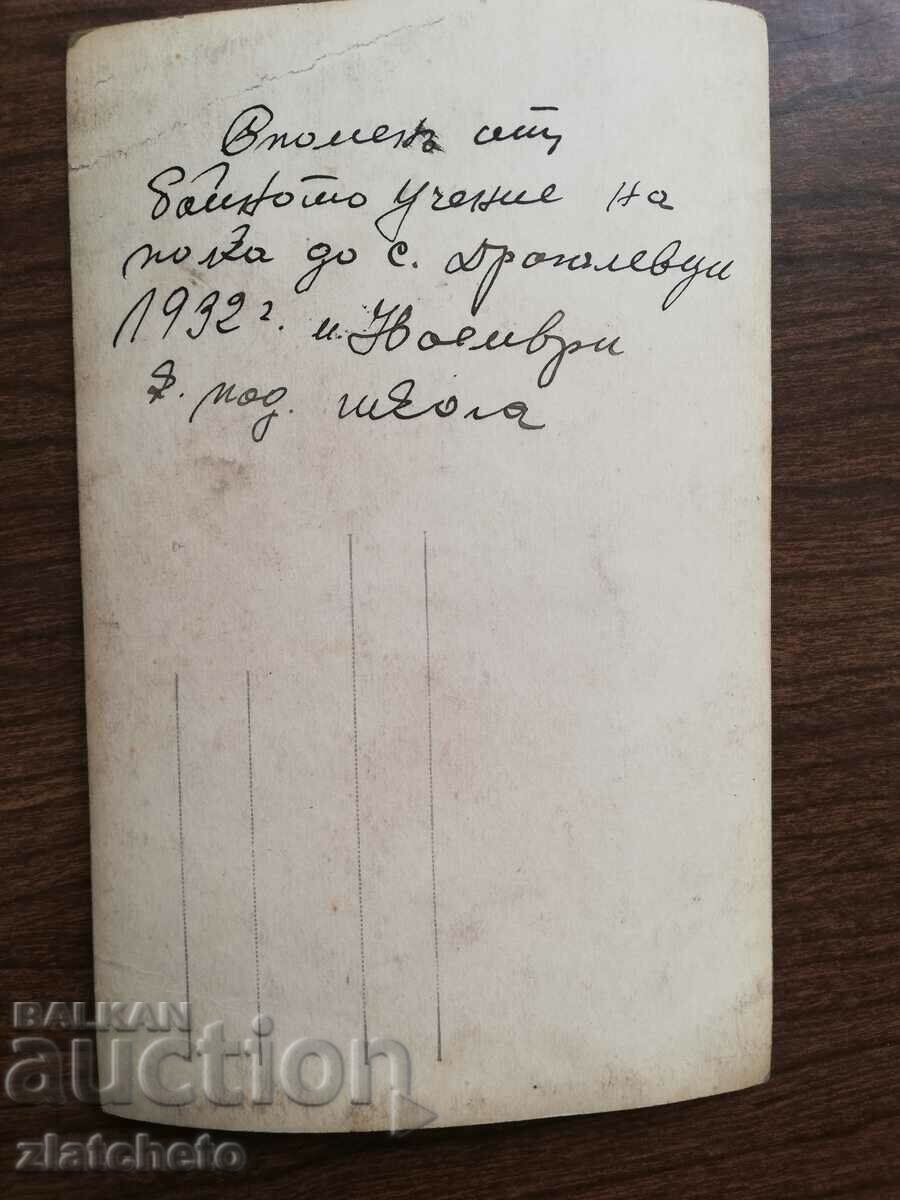 Впоменъ отъ
бойното учение на
полка до с. Драгалевци
1932 г. м. Ноември
под. школа
BALKAN
auction
zlatcheto